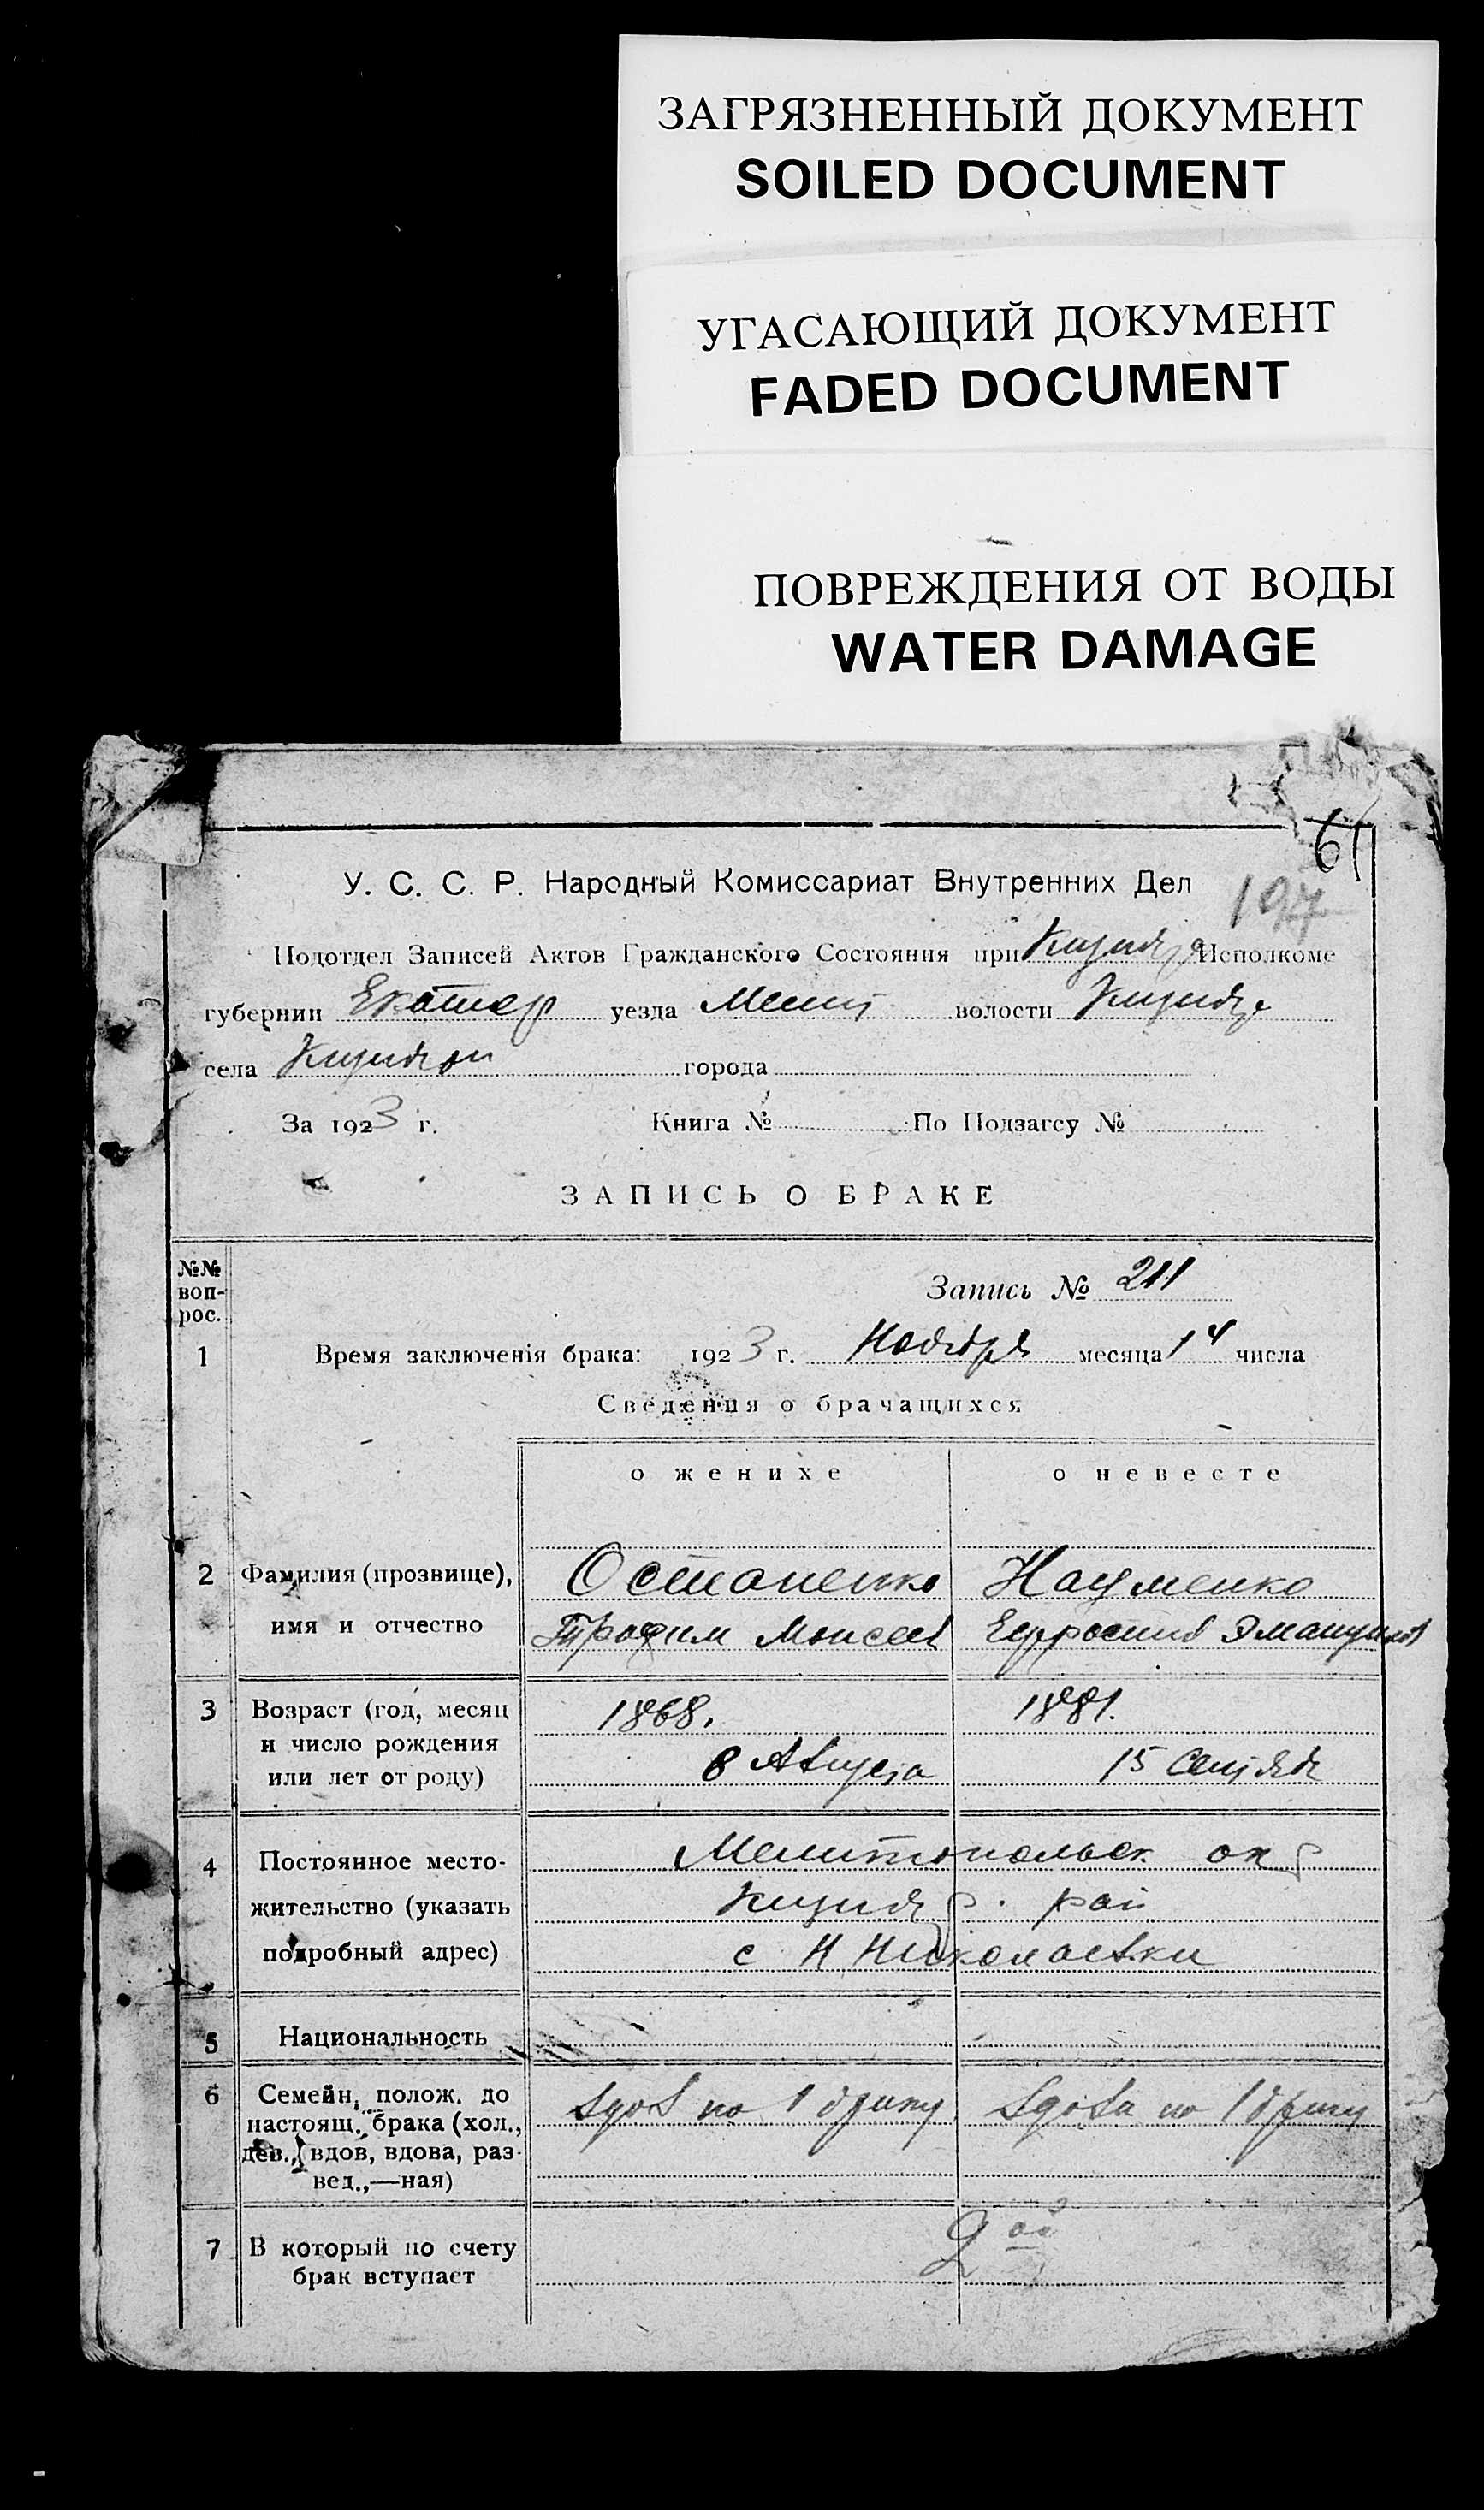 ЗАГРЯЗНЕННЫЙ ДОКУМЕНТ
SOILED DOCUMENT
УГАСАЮЩИЙ ДОКУМЕНТ
FADED DOCUMENT
ПОВРЕЖДЕНИЯ ОТ ВОДЫ
WATER DAMAGE
61
197
У. С. С. Р. Народный Комиссариат Внутренних Дел
Подотдел Записей Актов Гражданского Состояния при Исполкоме
губернии Екатер уезда Мелит волости
села города
За 1923 г. Книга № По Подзагсу №
ЗАПИСЬ О БРАКЕ
№№ вопрос.
Запись № 211
1 Время заключенія брака: 1923 г. Ноября месяца 14 числа
Сведения о брачащихся
о женихе о невесте
2 Фамилия (прозвище), Остапенко Науменко
имя и отчество Трофим Моисеев Ефросинья
3 Возраст (год, месяц 1868. 1881.
и число рождения 8 Августа 15 Сентяб
или лет от роду)
4 Постоянное место- Мелитопольск окр
жительство (указать рай
подробный адрес) с Н Николаевки
5 Национальность
6 Семейн. полож. до вдов по 1 браку вдова по 1 браку
настоящ. брака (хол.,
дев., вдов, вдова, раз-
вед.,—ная)
7 В который по счету 2ой
брак вступает